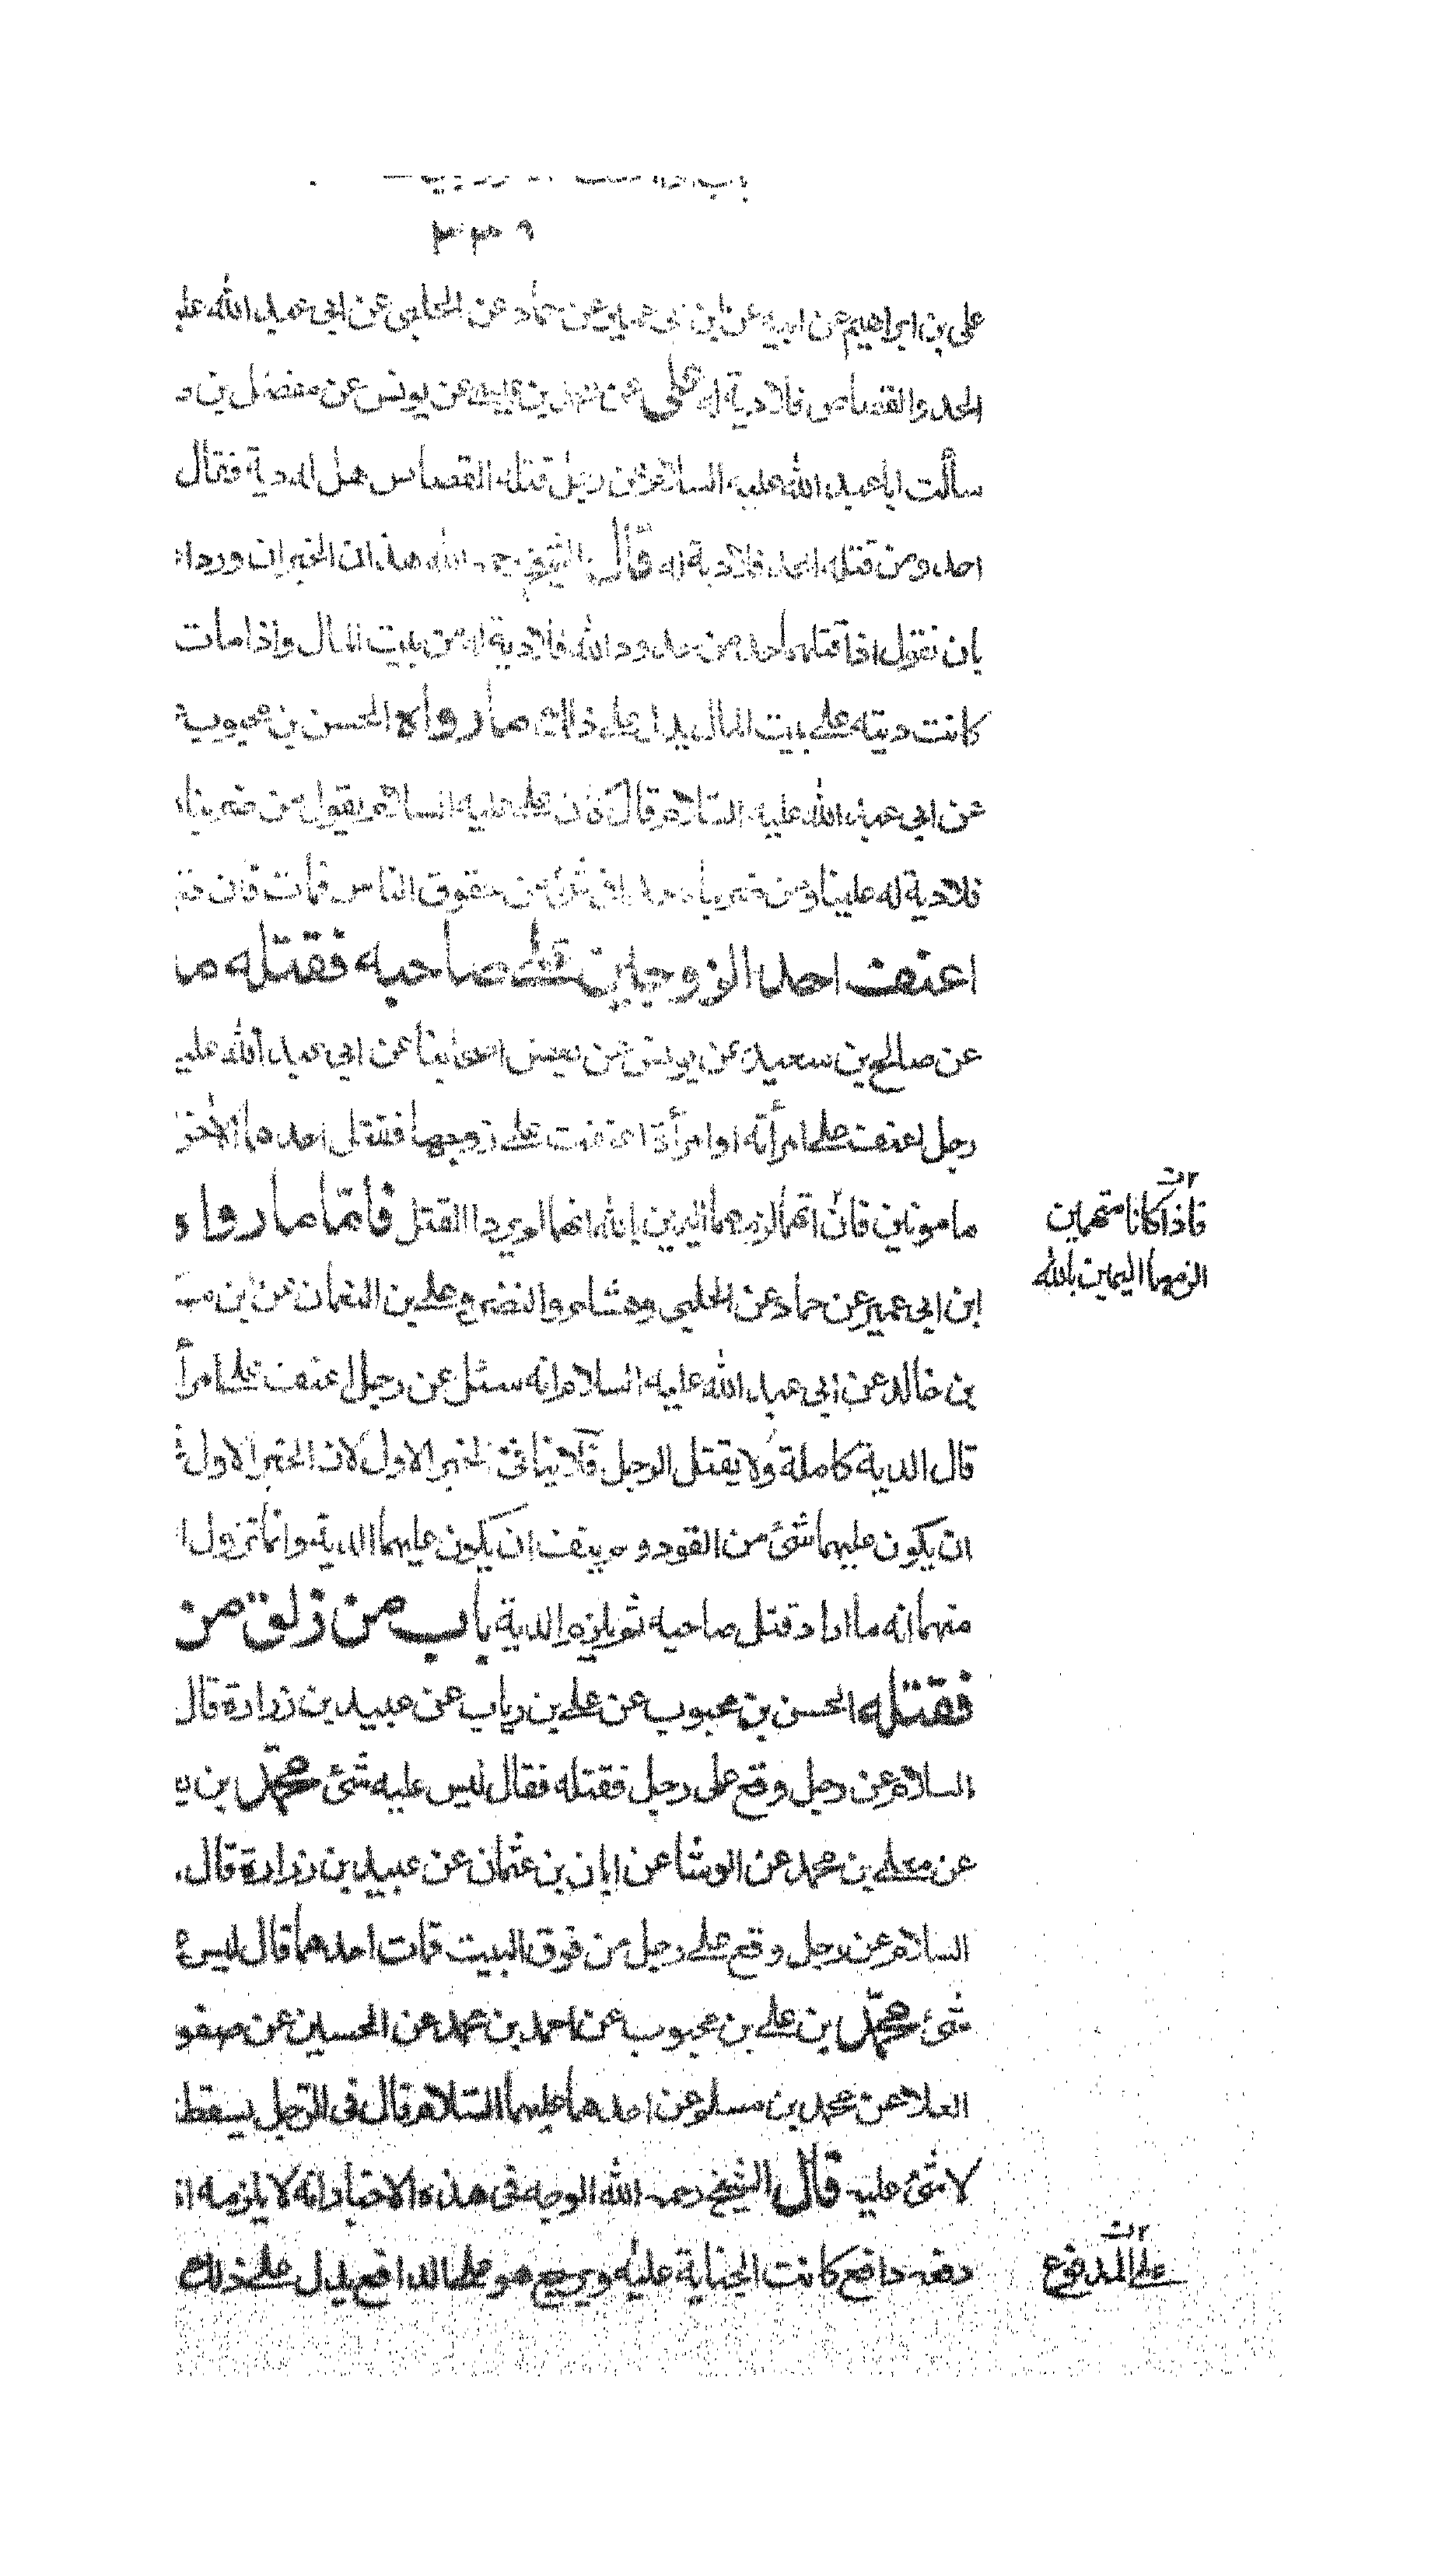 ٣٣٩
علي بن ابراهيم عن ابيه عن ابن ابي عمير عن حماد عن الحلبي عن ابي عبد الله عليه
الحد والقصاص فلا دية له علي عن محمد بن عيسى عن يونس عن مفضل بن
سألت ابا عبد الله عليه السلام عن رجل قتله القصاص هل له دية فقال
احد ومن قتله الحد فلا دية له قال الشيخ رحمه الله هذان الخبران وردا
بان نقول اذا قتلهما حد من حدود الله فلا دية له من بيت المال واذا مات
كانت ديته على بيت المال يدل على ذلك ما رواه الحسن بن محبوب
عن ابي عبد الله عليه السلام قال كان علي عليه السلام يقول من ضربناه
فلا دية له علينا ومن ضربناه حدا في شئ من حقوق الناس فمات فان
اعنف احد الزوجين على صاحبه فقتله ما
عن صالح بن سعيد عن يونس عن بعض اصحابنا عن ابي عبد الله عليه
رجل اعنف على امرأته او امرأة اعنفت على زوجها فقتل احدهما الآخر
مامونين فان اتهما الزمهما اليمين بالله انهما لم يردا القتل فاما ما رواه
فاذا كانا متهمين
الزمهما اليمين بالله
ابن ابي عمير عن حماد عن الحلبي وهشام والنضر وعلي بن النعمان عن ابن
بن خالد عن ابي عبد الله عليه السلام انه سئل عن رجل اعنف على امرأ
قال الدية كاملة ولا يقتل الرجل فلا ينافي الخبر الاول لان الخبر الاول
ان يكون عليهما شئ من القود ولم ينف ان يكون عليهما الدية وانما تزول
منهما انه ما اراد قتل صاحبه ثم يلزمه الدية باب من زلق من
فقتله الحسن بن محبوب عن علي بن رياب عن عبيد بن زرارة قال
السلام عن رجل وقع على رجل فقتله فقال ليس عليه شئ محمد بن
عن معلى بن محمد عن الوشا عن ابان بن عثمان عن عبيد بن زرارة قال
السلام عن رجل وقع على رجل من فوق البيت فمات احدهما قال ليس
شئ محمد بن علي بن محبوب عن احمد بن محمد عن الحسين عن صفو
العلا عن محمد بن مسلم عن احدهما عليهما السلام قال في الرجل يسقط
لا شئ عليه قال الشيخ رحمه الله الوجه في هذه الاخبار انه لا يلزمه
دفعه دافع كانت الجناية عليه ويرجع هو على الدافع يدل على ذلك
على المدفوع